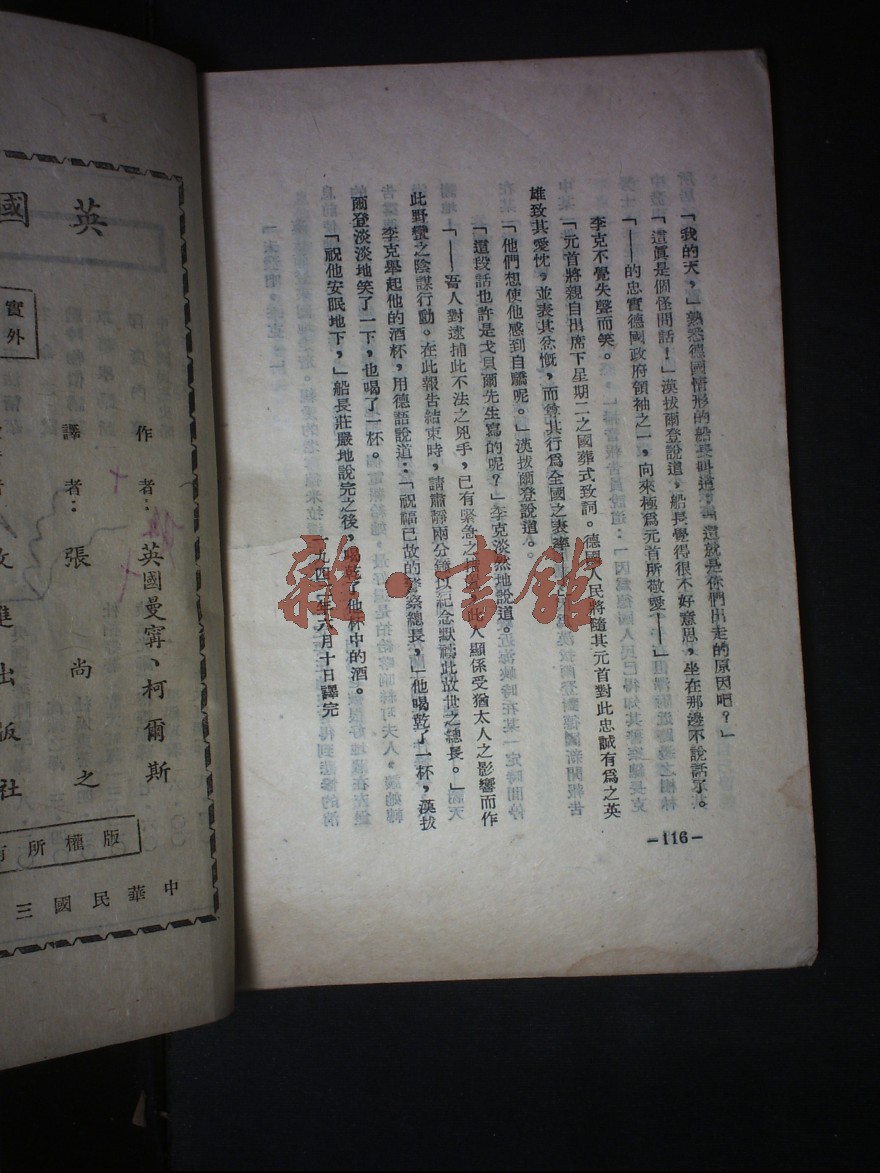 「我的天，」熟悉德國情形的船長叫道：「這就是你們出走的原因吧？」
「這眞是個怪問話！」漢拔爾登說道，船長覺得很不好意思，坐在那邊不說話了。
「——的忠實德國政府領袖之一，向來極爲元首所敬愛——」
李克不覺失聲而笑。
「元首將親自出席下星期二之國葬式致詞。德國人民將隨其元首對此忠誠有爲之英
雄致其愛忱，並表其忿慨，而尊其行爲全國之表率
「他們想使他感到自驕呢。」漢拔爾登說道。
「這段話也許是戈貝爾先生寫的呢？」李克淡然地說道。
「——吾人對逮捕此不法之兇手，已有緊急之 此人顯係受猶太人之影響而作
此野蠻之陰謀行動。在此報告結束時，請肅靜兩分鐘以紀念默禱此故世之總長。」
李克舉起他的酒杯，用德語說道：「祝福已故的警察總長，」他喝乾了一杯，漢拔
爾登淡淡地笑了一下，也喝了一杯。
「祝他安眠地下，」船長莊嚴地說完之後，喝乾了他杯中的酒。
一九四一年六月十日譯完
—116—
英國
實
外
作者：英國曼甯、柯爾斯
譯者：張尚之
建出版社
版權所有
中華民國三
雜·書館